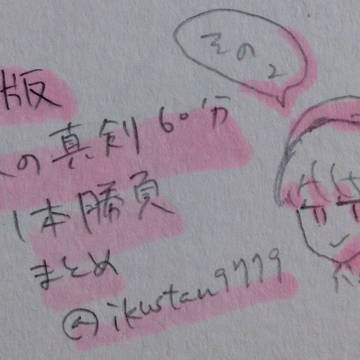 その
2
版
の真剣60分
1本勝負
まとめ
@ikustan9779